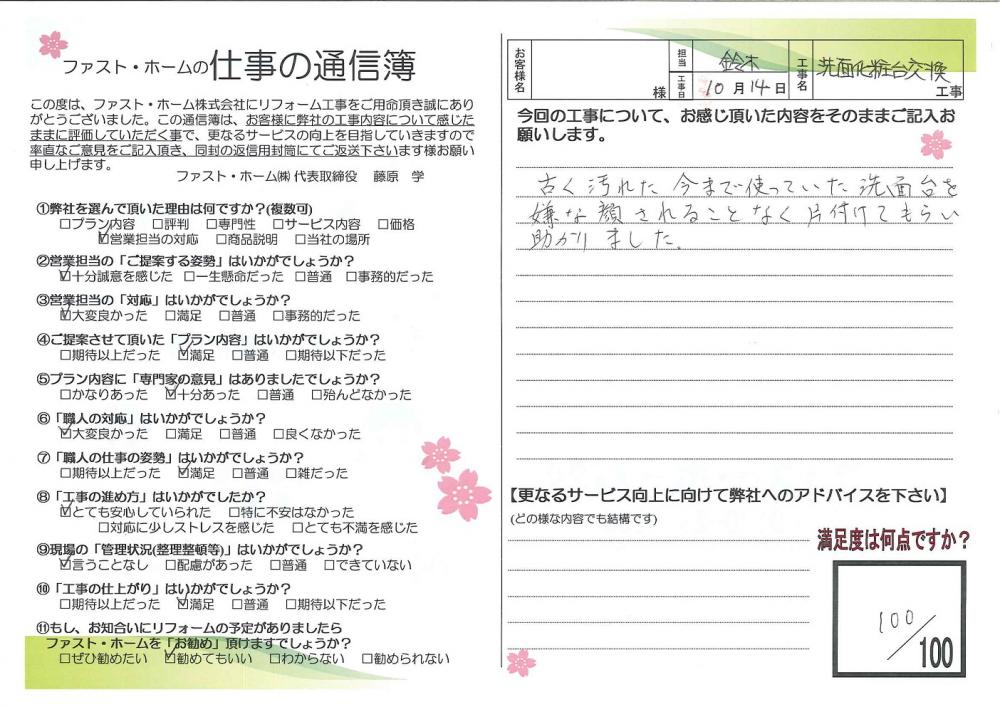 ファスト・ホームの仕事の通信簿
この度は、ファスト・ホーム株式会社にリフォーム工事をご用命頂き誠にあり
がとうございました。この通信簿は、お客様に弊社の工事内容について感じた
ままに評価していただく事で、更なるサービスの向上を目指していきますので
率直なご意見をご記入頂き、同封の返信用封筒にてご返送下さいます様お願い
申し上げます。
ファスト・ホーム㈱ 代表取締役 藤原 学
①弊社を選んで頂いた理由は何ですか?(複数可)
□プラン内容 □評判 □専門性 □サービス内容 □価格
☑営業担当の対応 □商品説明 □当社の場所
②営業担当の「ご提案する姿勢」はいかがですか?
☑十分誠意を感じた □一生懸命だった □普通 □事務的だった
③営業担当の「対応」はいかがでしょうか?
☑大変良かった □満足 □普通 □事務的だった
④ご提案させて頂いた「プラン内容」はいかがでしょうか?
□期待以上だった ☑満足 □普通 □期待以下だった
⑤プラン内容に「専門家の意見」はありましたでしょうか?
□かなりあった ☑十分あった □普通 □殆んどなかった
⑥「職人の対応」はいかがでしょうか?
☑大変良かった □満足 □普通 □良くなかった
⑦「職人の仕事の姿勢」はいかがでしょうか?
□期待以上だった ☑満足 □普通 □雑だった
⑧「工事の進め方」はいかがでしたか?
☑とても安心していられた □特に不安はなかった
□対応に少しストレスを感じた □とても不満を感じた
⑨現場の「管理状況(整理整頓等)」はいかがでしょうか?
☑言うことなし □配慮があった □普通 □できていない
⑩「工事の仕上がり」はいかがでしょうか?
□期待以上だった ☑満足 □普通 □期待以下だった
⑪もし、お知合いにリフォームの予定がありましたら
ファスト・ホームを「お勧め」頂けますでしょうか?
□ぜひ勧めたい ☑勧めてもいい □わからない □勧められない
お客様名 様 担当 鈴木 工事日 10月14日 工事名 洗面化粧台交換 工事
今回の工事について、お感じ頂いた内容をそのままご記入お
願いします。
古く汚れた今まで使っていた洗面台を
嫌な顔されることなく片付けてもらい
助かりました。
【更なるサービス向上に向けて弊社へのアドバイスを下さい】
(どの様な内容でも結構です)
満足度は何点ですか?
100/100